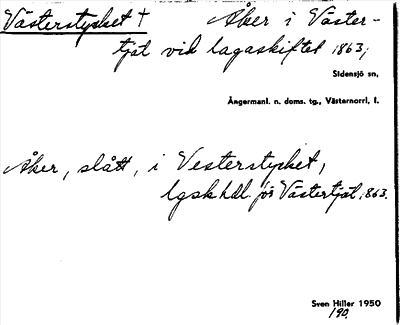 Västerstycket † Åker i Väster-
tjäl vid lagaskiftet 1863;
Sidensjö sn,
Ångermanl. n. doms. tg., Västernorrl. l.
Åker, slått, i Vesterstycket,
lgskhdl. för Västertjäl 1863.
Sven Hiller 1950
190.